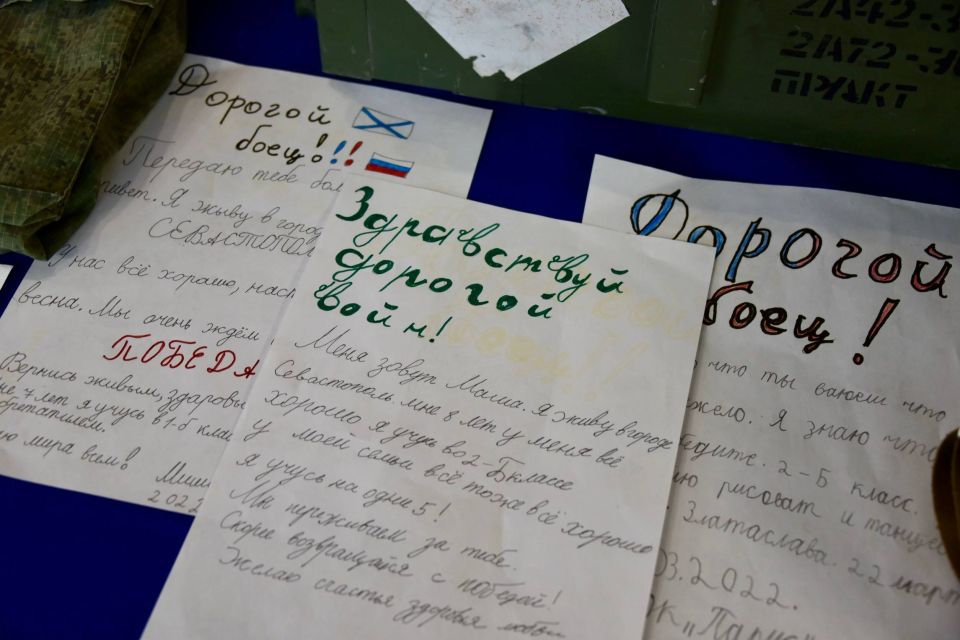 2А42-30
2А72-30
ПРАКТ
Дорогой
боец!!!
Передаю тебе бол
привет. Я живу в город
СЕВАСТОПОЛ
У нас всё хорошо, наст
весна. Мы очень ждём
ПОБЕДА
Вернись живым, здоровы
мне 7 лет я учусь в 1-б клас
обретателем.
мира всем! Миша
2022
Здравствуй
дорогой
войн!
Меня зовут Маша. Я живу в городе
Севастополь. мне 8 лет у меня всё
хорошо я учусь во 2-Б классе
у моей семьи всё тоже всё хорошо
я учусь на одни 5!
Мы переживаем за тебе.
Скорее возвращайся с победой!
Желаю счастья здоровья любви
Дорогой
боец!
что ты воюеш что
жело. Я знаю что
бедите. 2-Б класс.
рисоват и танце
Златаслава. 22 март
03.2022.